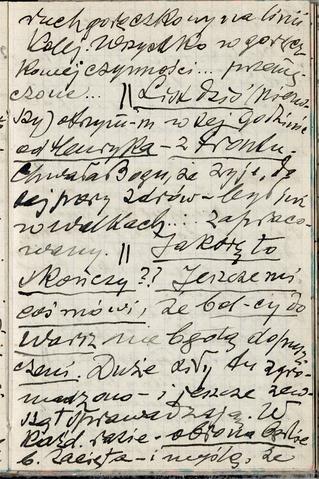 ruch gorączkowy na linii
kolej. Wszystko w gorącz
kowej czynności... przemę
czone... || List dziś (pierw
szy) otrzym-m w tej godzinie
od Henryka - z frontu.
Chwała Bogu, że żyje, do
tej pory zdrów - był już
w walkach... zapraco-
wany. || Jak się to
skończy?? Jeszcze mi
coś mówi, że bol-cy do
Warsz nie będą dopusz
czeni. Duże siły tu zgro-
madzono - i jeszcze zew-
sząd sprowadzają. W
każd. razie - obrona będzie
b. zacięta - i myślę, że